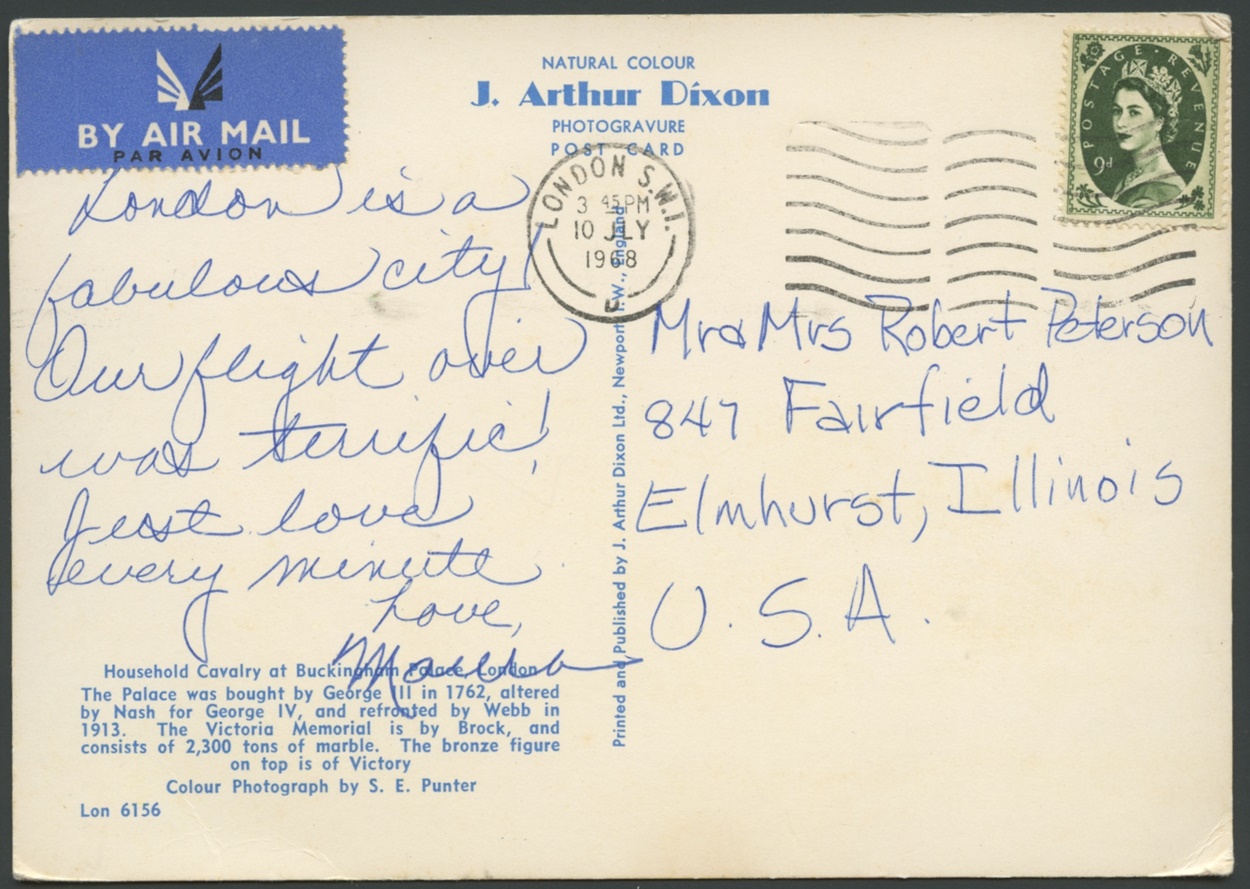 BY AIR MAIL
PAR AVION
NATURAL COLOUR
J. Arthur Dixon
PHOTOGRAVURE
POST CARD
LONDON S.W.1.
3 45 PM
10 JLY
1968
POSTAGE · REVENUE
9d
London is a
fabulous city!
Our flight over
was terrific!
Just love
every minute
Love,
Household Cavalry at Buckingham Palace, London
The Palace was bought by George III in 1762, altered
by Nash for George IV, and refronted by Webb in
1913. The Victoria Memorial is by Brock, and
consists of 2,300 tons of marble. The bronze figure
on top is of Victory
Colour Photograph by S. E. Punter
Lon 6156
Printed and Published by J. Arthur Dixon Ltd., Newport I.W., England
Mr & Mrs Robert Peterson
847 Fairfield
Elmhurst, Illinois
U.S.A.